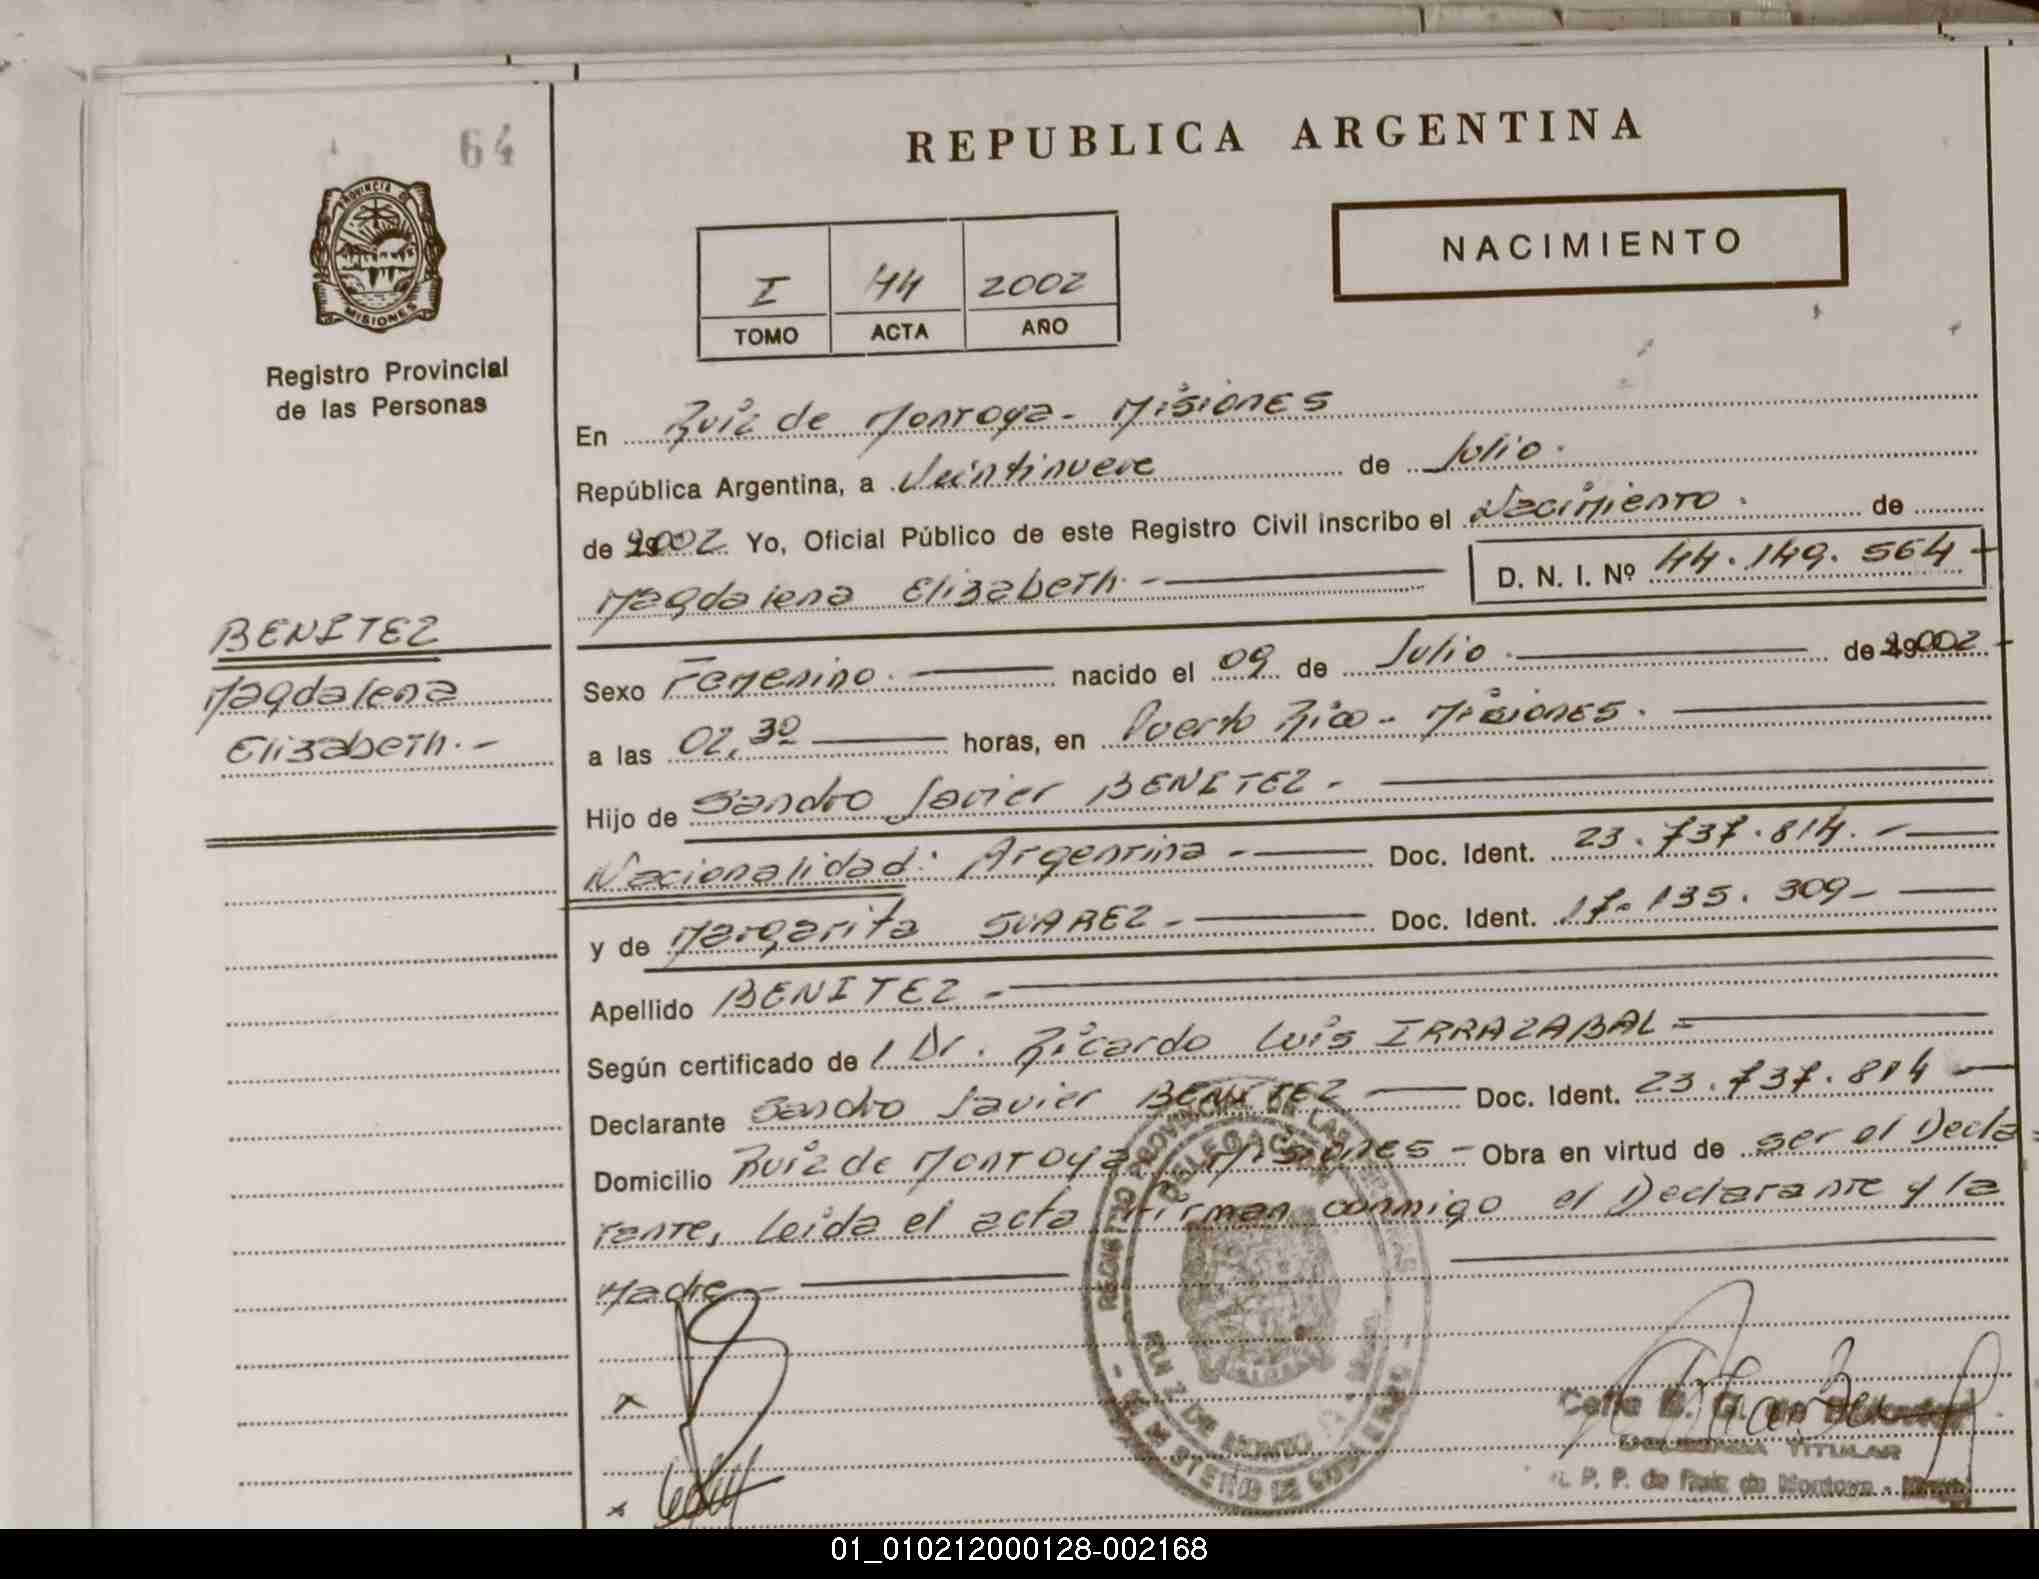 64
PROVINCIA DE
MISIONES
Registro Provincial
de las Personas
BENITEZ
Magdalena
Elizabeth.-
REPUBLICA ARGENTINA
NACIMIENTO
I 44 2002
TOMO ACTA AÑO
En Ruiz de Montoya - Misiones
República Argentina, a Veintinueve de Julio.
de 2002. Yo, Oficial Público de este Registro Civil inscribo el Nacimiento. de
Magdalena Elizabeth.- D. N. I. Nº 44.149.564-
Sexo Femenino. nacido el 09 de Julio. de 2002-
a las 02,30 horas, en Puerto Rico - Misiones.
Hijo de Sandro Javier BENITEZ.-
Nacionalidad: Argentina - Doc. Ident. 23.737.814.-
y de Margarita SUAREZ.- Doc. Ident. 17.135.309-
Apellido BENITEZ -
Según certificado de l Dr. Ricardo Luis IRRAZABAL -
Declarante Sandro Javier BENITEZ Doc. Ident. 23.737.814 -
Domicilio Ruiz de Montoya Misiones - Obra en virtud de ser el Decla-
rante, Leida el acta Firman conmigo el Declarante y la
Madre -
REGISTRO PROVINCIAL DE LAS PERSONAS
DELEGACION
RUIZ DE MONTOYA
MINISTERIO DE GOBIERNO
x
x
TITULAR
R. P. P. de Ruiz de Montoya - Misiones
01_010212000128-002168